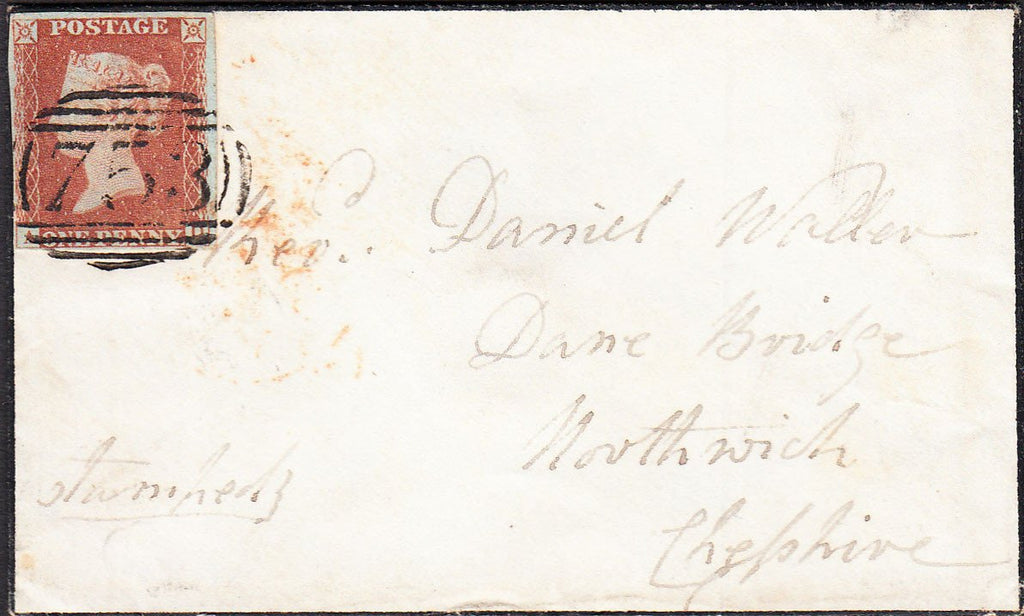 POSTAGE
753
ONE PENNY
Rev. Daniel Waller
Dane Bridge
Northwich
Cheshire
Stamped